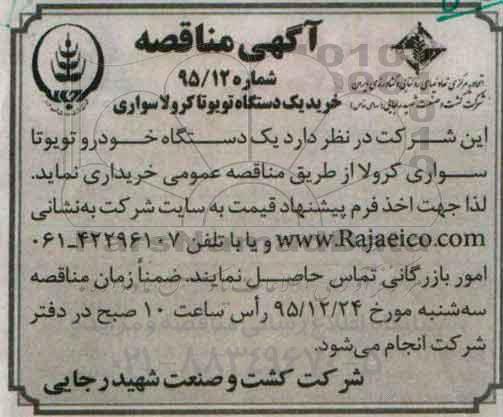 آگهی مناقصه
شماره ۹۵/۱۲
خرید یک دستگاه تویوتا کرولا سواری
شرکت کشت و صنعت شهید رجایی (سهامی خاص)
این شرکت در نظر دارد یک دستگاه خودرو تویوتا
سواری کرولا از طریق مناقصه عمومی خریداری نماید.
لذا جهت اخذ فرم پیشنهاد قیمت به سایت شرکت به‌نشانی
www.Rajaeico.com و یا با تلفن ۴۲۲۹۶۱۰۷-۰۶۱
امور بازرگانی تماس حاصل نمایند. ضمناً زمان مناقصه
سه‌شنبه مورخ ۹۵/۱۲/۲۴ رأس ساعت ۱۰ صبح در دفتر
شرکت انجام می‌شود.
شرکت کشت و صنعت شهید رجایی